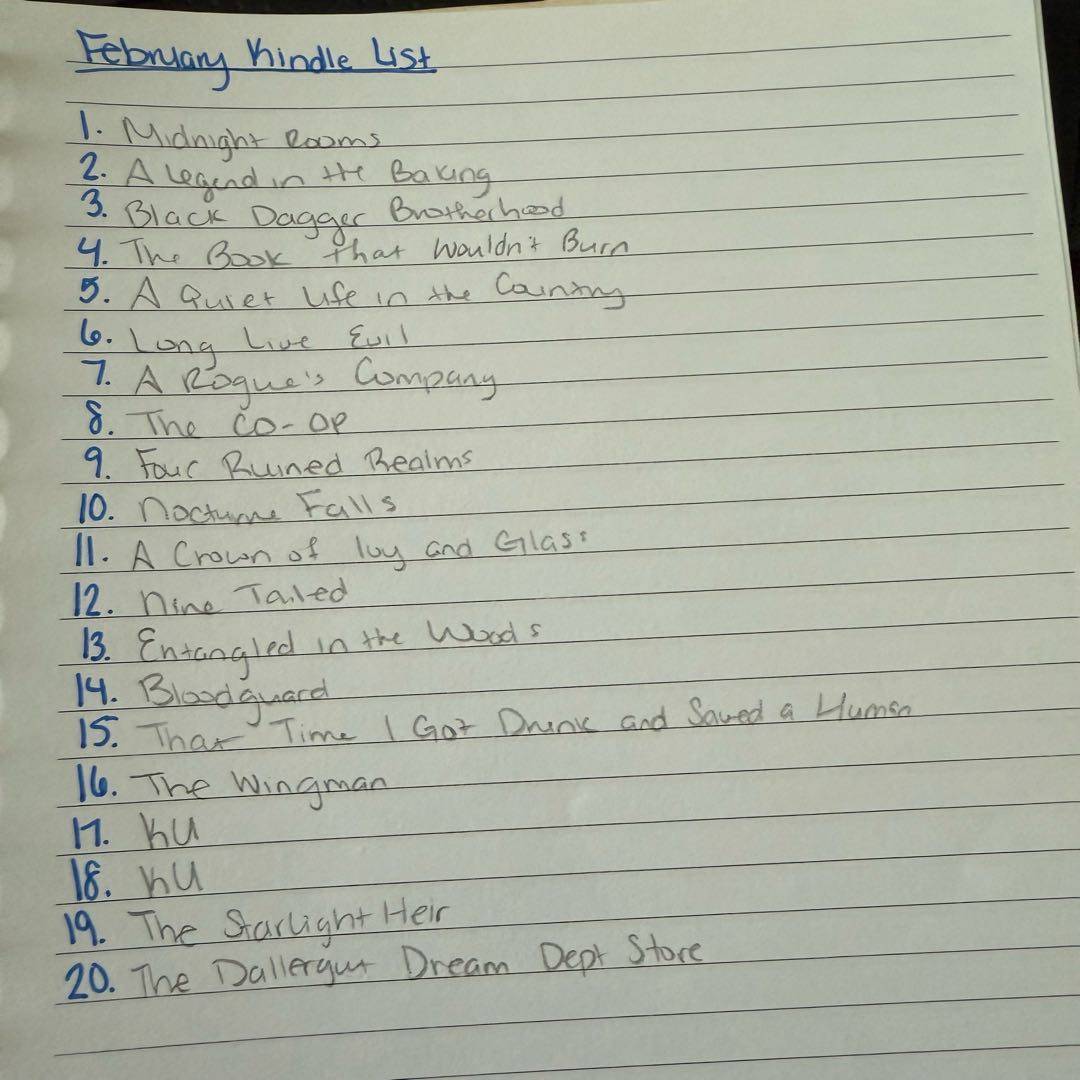 February Kindle List
1. Midnight Rooms
2. A Legend in the Baking
3. Black Dagger Brotherhood
4. The Book that Wouldn't Burn
5. A Quiet Life in the Country
6. Long Live Evil
7. A Rogue's Company
8. The Co-op
9. Four Ruined Realms
10. Nocturne Falls
11. A Crown of Ivy and Glass
12. Nine Tailed
13. Entangled in the Woods
14. Bloodguard
15. That Time I Got Drunk and Saved a Human
16. The Wingman
17. KU
18. KU
19. The Starlight Heir
20. The Dallergut Dream Dept Store